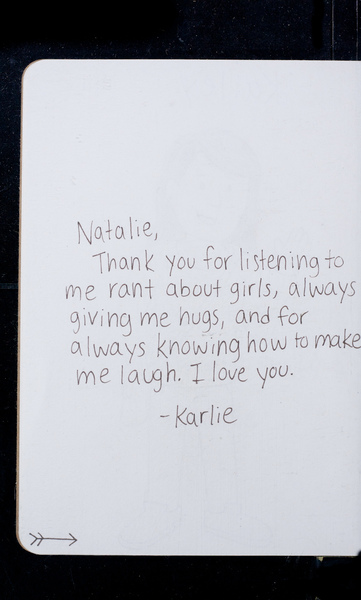 Natalie,
Thank you for listening to
me rant about girls, always
giving me hugs, and for
always knowing how to make
me laugh. I love you.
-Karlie